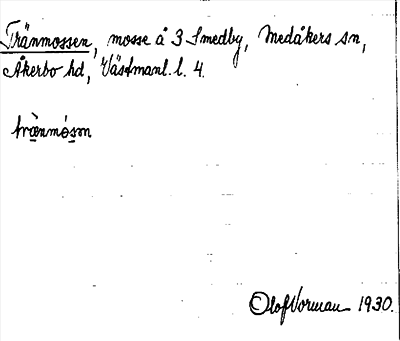 Tränmossen, mosse å 3 Smedby, Medåkers sn,
Åkerbo hd, Västmanl. l. 4.
trænmósɔn
Olof Vorman 1930.